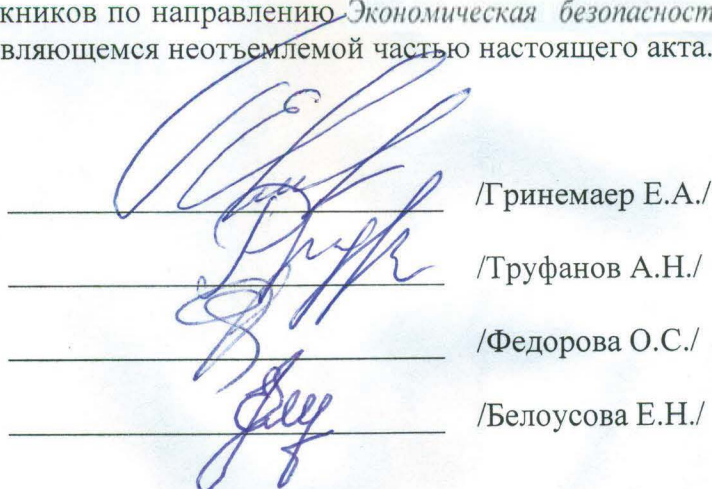 кников по направлению Экономическая безопасност
вляющемся неотъемлемой частью настоящего акта.
/Гринемаер Е.А./
/Труфанов А.Н./
/Федорова О.С./
/Белоусова Е.Н./